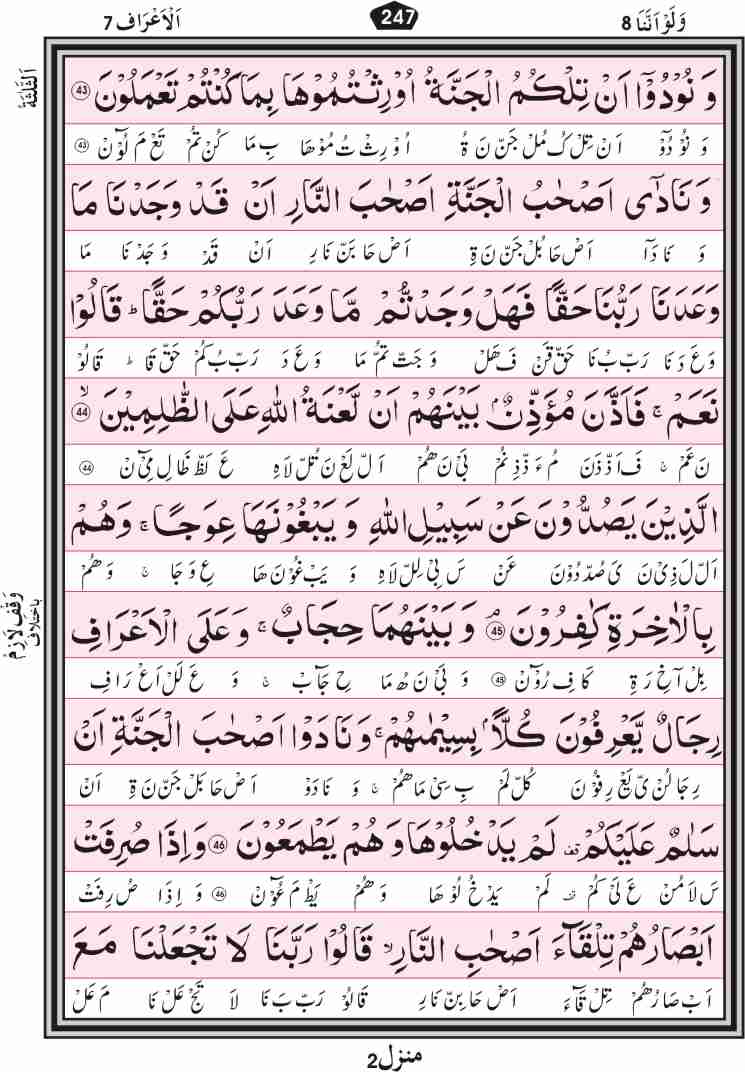 وَلَوْ اَنَّنَا 8
247
اَلْاَعْرَاف 7
اَلثُّلٰثَةُ
وَ نُوْدُوْۤا اَنْ تِلْكُمُ الْجَنَّةُ اُوْرِثْتُمُوْهَا بِمَا كُنْتُمْ تَعْمَلُوْنَ 43
وَ نُوْ دُوْۤ اَنْ تِلْ كُ مُلْ جَنّ نَ ةُ اُوْ رِثْ تُ مُوْ هَا بِ مَا كُنْ تُمْ تَعْ مَ لُوْٓنْ 43
وَ نَادٰۤى اَصْحٰبُ الْجَنَّةِ اَصْحٰبَ النَّارِ اَنْ قَدْ وَجَدْنَا مَا
وَ نَا دَآ اَصْ حَا بُلْ جَنّ نَ ةِ اَصْ حَا بَنّ نَا رِ اَنْ قَدْ وَ جَدْ نَا مَا
وَعَدَنَا رَبُّنَا حَقًّا فَهَلْ وَجَدْتُّمْ مَّا وَعَدَ رَبُّكُمْ حَقًّا ؕ قَالُوْا
وَ عَ دَ نَا رَبّ بُ نَا حَقّ قَنْ فَ هَلْ وَ جَتّ تُمّ مَا وَ عَ دَ رَبّ بُ كُمْ حَقّ قَا ؕ قَا لُوْ
نَعَمْ ۚ فَاَذَّنَ مُؤَذِّنٌۢ بَيْنَهُمْ اَنْ لَّعْنَةُ اللّٰهِ عَلَى الظّٰلِمِيْنَ ۙ 44
نَ عَمْ ۚ فَ اَذّ ذَنَ مُ ءَ ذّ ذِ نُمْ بَىْ نَ هُمْ اَلّ لَعْ نَ تُلّ لَا هِ عَ لَظّ ظَا لِ مِىْٓ نْ 44
الَّذِيْنَ يَصُدُّوْنَ عَنْ سَبِيْلِ اللّٰهِ وَ يَبْغُوْنَهَا عِوَجًا ۚ وَهُمْ
اَلّ لَ ذِىْ نَ ىَ صُدّ دُوْ نَ عَنْ سَ بِىْ لِلّ لَا هِ وَ يَبْ غُوْ نَ هَا عِ وَ جَا ۚ وَ هُمْ
وَقْفِ لَازِمْ
باختلاف
بِالْاٰخِرَةِ كٰفِرُوْنَ ۘ 45 وَ بَيْنَهُمَا حِجَابٌ ۚ وَعَلَى الْاَعْرَافِ
بِلْ آ خِ رَ ةِ كَا فِ رُوْٓنْ 45 وَ بَىْ نَ هُ مَا حِ جَآبْ ۚ وَ عَ لَلْ اَعْ رَا فِ
رِجَالٌ يَّعْرِفُوْنَ كُلًّاۢ بِسِيْمٰىهُمْ ۚ وَ نَادَوْا اَصْحٰبَ الْجَنَّةِ اَنْ
رِ جَا لُنْ ىّ يَعْ رِ فُوْ نَ كُلّ لَمْ بِ سِىْ مَا هُمْ ۚ وَ نَا دَوْ اَصْ حَا بَلْ جَنّ نَ ةِ اَنْ
سَلٰمٌ عَلَيْكُمْ قف لَمْ يَدْخُلُوْهَا وَهُمْ يَطْمَعُوْنَ 46 وَاِذَا صُرِفَتْ
سَ لَا مُنْ عَ لَىْ كُمْ قف لَمْ يَدْ خُ لُوْ هَا وَ هُمْ يَطْ مَ عُوْٓنْ 46 وَ اِذَا صُ رِ فَتْ
اَبْصَارُهُمْ تِلْقَآءَ اَصْحٰبِ النَّارِ ۙ قَالُوْا رَبَّنَا لَا تَجْعَلْنَا مَعَ
اَبْ صَا رُ هُمْ تِلْ قَآءَ اَصْ حَا بِنّ نَا رِ قَا لُوْ رَبّ بَ نَا لَا تَجْ عَلْ نَا مَ عَلْ
منزل2